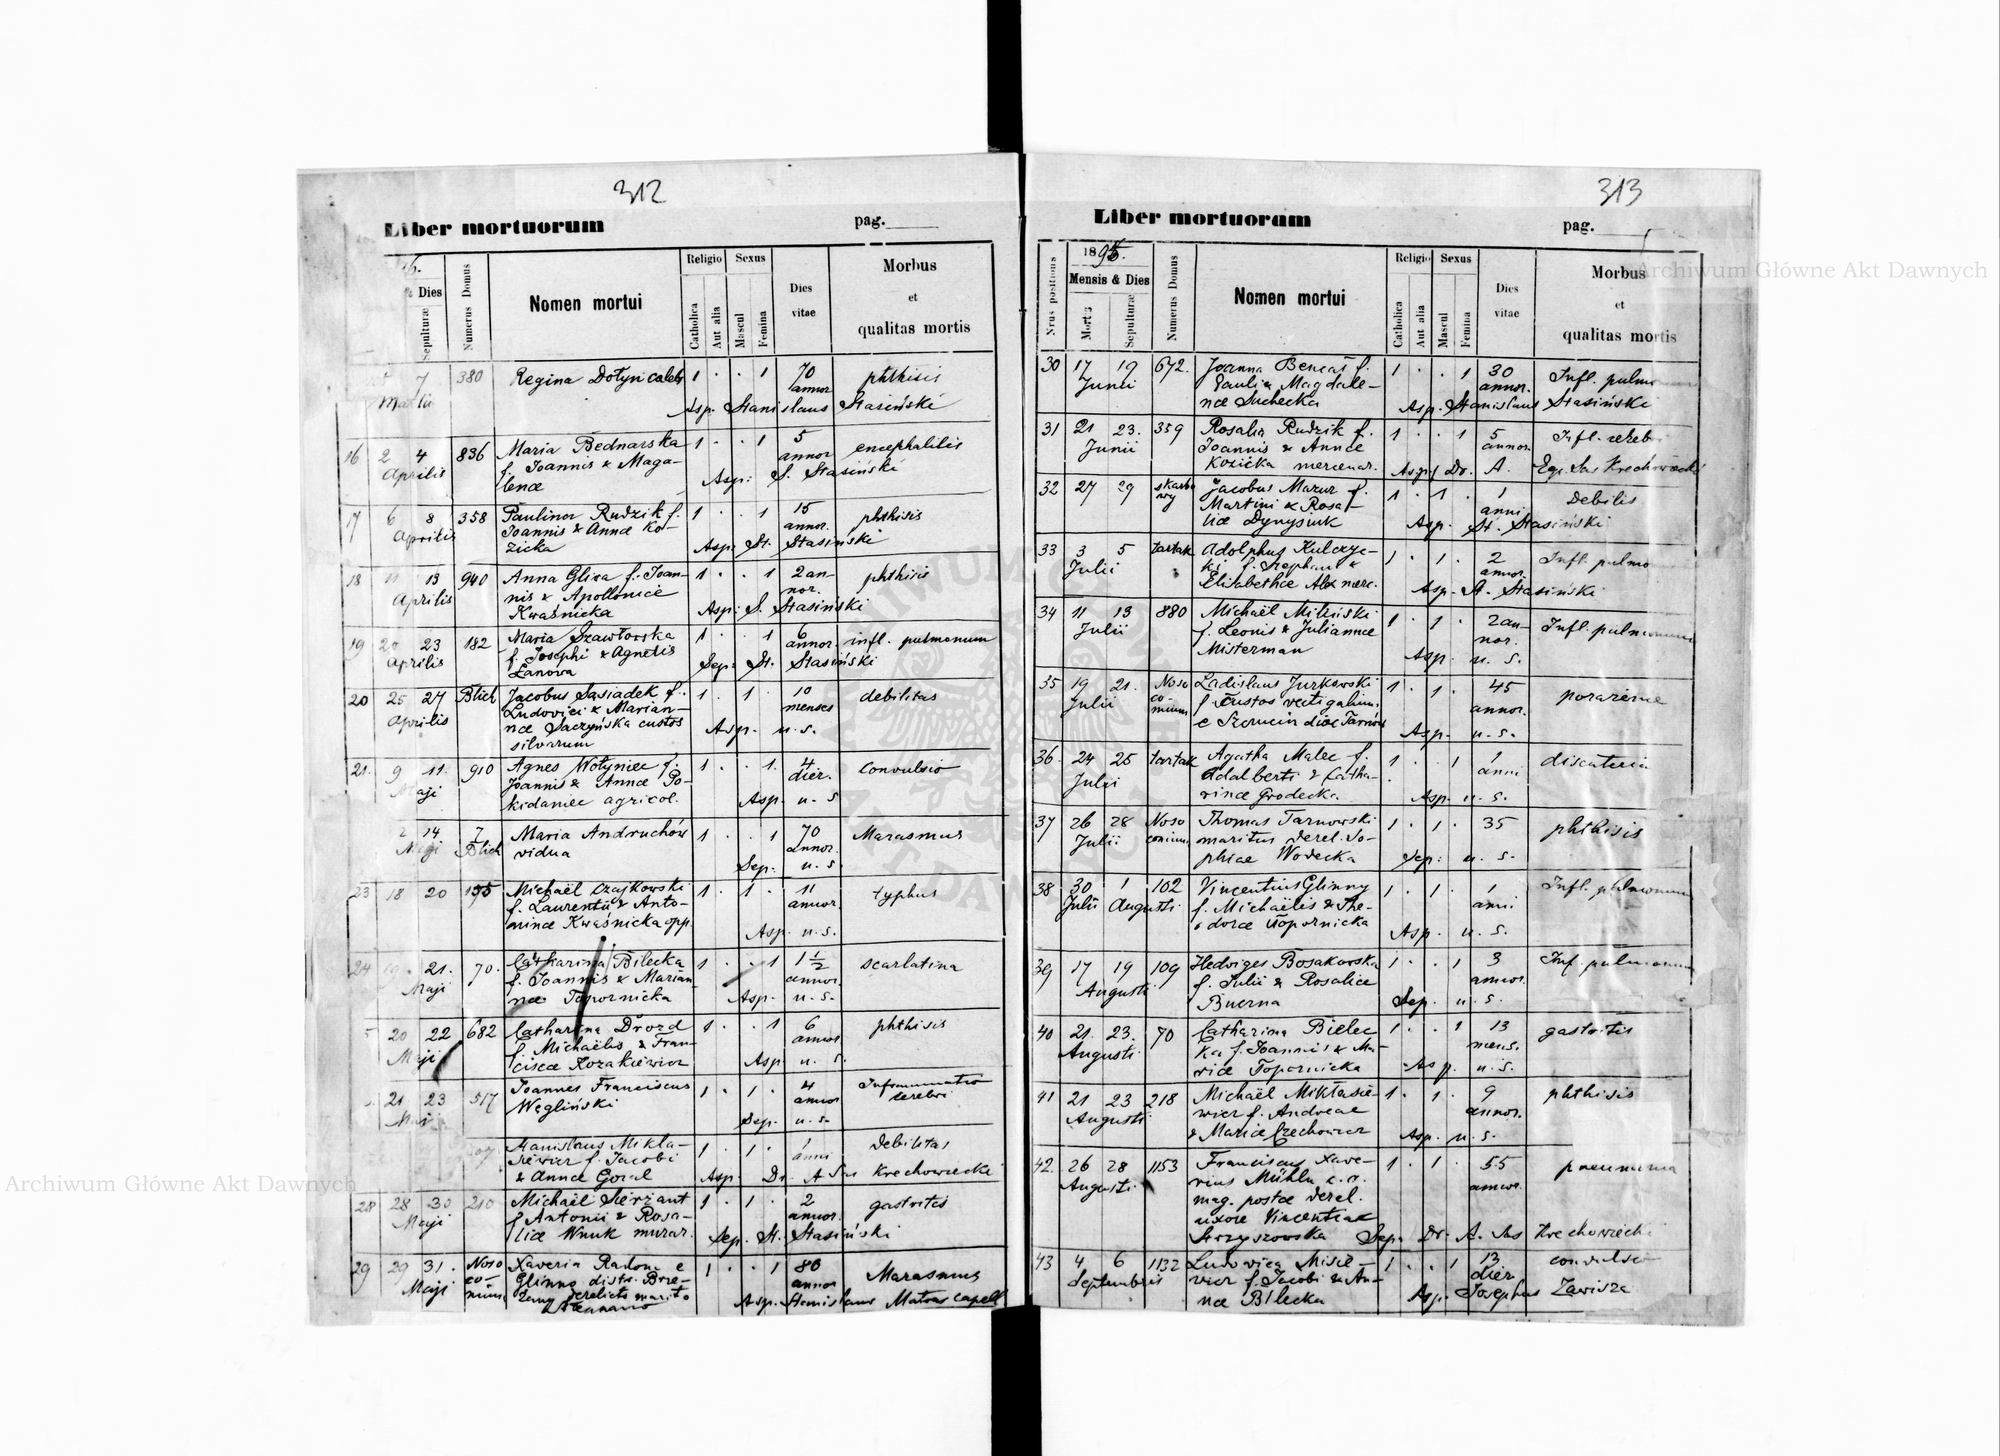 312
Liber mortuorum
pag.
Dies
Sepulturæ
Numerus Domus
Nomen mortui
Religio
Catholica
Aut alia
Sexus
Mascul
Femina
Dies
vitae
Morbus
et
qualitas mortis
7
Martii
380
Regina Dołyn caleb
1 . . 1
70
annor
phthisis
Asp. Stanislaus Stasiński
16
2 4
Aprilis
836
Maria Bednarska
f. Joannis & Maga-
lenæ
1 . . 1
5
annor
encephalitis
Asp: S. Stasiński
17
6 8
Aprilis
358
Paulina Rudzik f.
Joannis & Annæ Ko-
zicka
1 . . 1
15
annor.
phthisis
Asp: St. Stasiński
18
11 13
Aprilis
940
Anna Gliza f. Joan-
nis & Apolloniæ
Kwaśnicka
1 . . 1
2 an-
nor.
phthisis
Asp: S. Stasiński
19
20 23
Aprilis
182
Maria Szawłowska
f. Josephi & Agnetis
Lanowa
1 . . 1
6
annor.
infl. pulmonum
Sep: St. Stasiński
20
25 27
Aprilis
Blich
Jacobus Sasiadek f.
Ludovici & Marian-
næ Saczyńska custos
silvarum
1 . 1 .
10
menses
debilitas
Asp. u. s.
21.
9 11.
Maji
910
Agnes Wołyniec f.
Joannis & Annæ Po-
kidaniec agricol.
1 . . 1.
4
dier.
convulsio
Asp. u. s
14
Maji
7
Blich
Maria Andruchów
vidua
1 . . 1
70
annor.
Marasmus
Sep. u. s.
23
18 20
155
Michaël Czajkowski
f. Laurentii & Anto-
ninæ Kwaśnicka opp.
1 . 1 .
11
annor
typhus
Asp. u. s.
24
19. 21.
Maji
70.
Catharina Bilecka
f. Joannis & Marian-
næ Topornicka
1 . .
1 1/2
annor.
scarlatina
Asp. u. s.
5
20 22
Maji
682
Catharina Drozd
f. Michaëlis & Fran-
ciscæ Kozakiewicz
1 . . 1
6
annor
phthisis
Asp u. s.
21 23
Maji
517
Joannes Franciscus
Węgliński
1 . 1 .
4
annor
Inflammatio
cerebri
Sep. u. s.
Stanislaus Mikła-
siewicz f. Jacobi
& Annæ Goral
1 . 1 .
1
anni
Debilitas
Asp. Dr. A Sas Krechowiecki
28
28 30
Maji
210
Michaël Sierżant
f. Antonii & Rosa-
liæ Wnuk murar.
1 . 1 .
2
annor.
gastritis
Sep. St. Stasiński
29
29 31.
Maji
Noso
co-
mium
Xaveria Radoni e
Glinno distr. Brze-
żany derelicta marito
1 . . 1
80
annor
Marasmus
Asp. Stanislaus Matras capell
313
Liber mortuorum
pag.
Nrus positionis
1895.
Mensis & Dies
Mortis
Sepulturæ
Numerus Domus
Nomen mortui
Religio
Catholica
Aut alia
Sexus
Mascul
Femina
Dies
vitae
Morbus
et
qualitas mortis
30
17 19
Junii
672.
Joanna Bencas f.
Pauli & Magdale-
næ Suchecka
1 . . 1
30
annor.
Infl. pulmo
Asp. Stanislaus Stasiński
31
21 23.
Junii
359
Rosalia Rudzik f.
Joannis & Annæ
Kozicka mercenar.
1 . . 1
5
annor.
Infl. cerebri
Asp. Dr. A. Eqs. Sas Krechowiecki
32
27 29
skarbo
wy
Jacobus Mazur f.
Martini & Rosa-
liæ Dynysiuk
1 . 1 .
1
anni
Debilis
Asp. St. Stasiński
33
3 5
Julii
tartak
Adolphus Kulczyc-
ki f. Stephani &
Elisabethæ
1 . 1 .
2
annor.
Infl. pulmo
Asp. St. Stasiński
34
11 13
Julii
880
Michaël Miliński
f. Leonis & Juliannæ
Misterman
1 . 1 .
2 an-
nor.
Infl. pulmonum
Asp. u. s.
35
19 21.
Julii
Noso
co-
mium
Ladislaus Jurkowski
f. custos vectigalium
e Szczucin diœc Tarnów
1 . 1 .
45
annor.
porażenie
Asp. u. s.
36
24 25
Julii
tartak
Agatha Malec f.
Adalberti & Catha-
rinæ Grodecka.
. . . 1
1
anni
discateria
Asp. u. s.
37
26 28
Julii
Noso
comium
Thomas Tarnowski
maritus derel. So-
phiæ Wodecka
1 . 1 .
35
phthisis
Sep: u. s.
38
30 1
Julii Augusti
102
Vincentius Glinny
f. Michaëlis & The-
odoræ Topornicka
1 . 1 .
1
anni
Infl. pulmonum
Asp. u. s.
39
17 19
Augusti
109
Hedviges Bosakowska
f. Julii & Rosaliæ
Buczna
1 . . 1
3
annor.
Inf. pulmonum
Sep. u. s.
40
21. 23.
Augusti
70
Catharina Bielec
ka f. Joannis & Ma-
riæ Topornicka
1 . . 1
13
mens.
gastritis
Asp. u. s.
41
21 23
Augusti
218
Michaël Mikłasie-
wicz f. Andreae
& Mariæ Czechowicz
1 . 1 .
9
annor.
phthisis
Asp. u. s.
42.
26 28
Augusti
1153
Franciscus Xave-
rius Mühln c. r.
mag. postæ derel.
uxore Vincentiae
Strzyszowska
1 . 1 .
55
annor.
pneumina
Sep. Dr. A. Sas Krechowiecki
43
4 6
Septembris
1132
Ludovica Misie-
wicz f. Jacobi & An-
næ Bilecka
1 . . 1
13
dier
convulsio
Asp. Josephus Zawisza
Archiwum Główne Akt Dawnych
Archiwum Główne Akt Dawnych